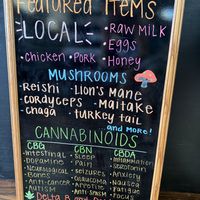 Featured Items
LOCAL
• RAW MILK
• Eggs
chicken • Pork • Honey
MUSHROOMS
Reishi • Lion's Mane
Cordyceps • Maitake
• chaga • turkey tail
and more!
CANNABINOIDS
CBG CBN CBDA
• Intestines • Sleep • Inflammation
• Dopamine • Pain • Serotonin
• Neurological • Seizures • Anxiety
• Bones • Glaucoma • Nausea
• Anti-cancer • Appetite • Fatigue
• Autism • Anti-Spasm • Focus
Delta 8 and